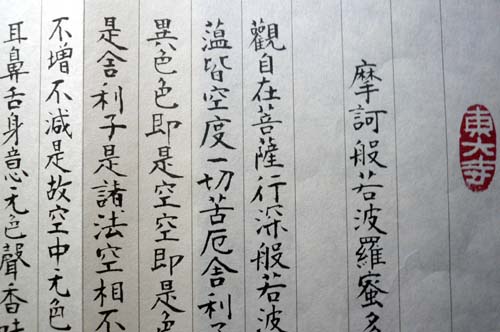 東大寺
摩訶般若波羅蜜多
觀自在菩薩行深般若波
薀皆空度一切苦厄舍利子
異色色即是空空即是色
是舍利子是諸法空相不
不增不減是故空中无色
耳鼻舌身意无色聲香味